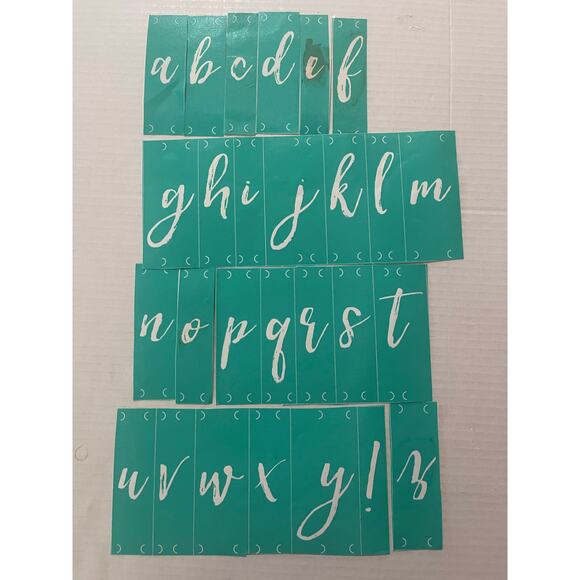 a b c d e f
g h i j k l m
n o p q r s t
u v w x y ! z